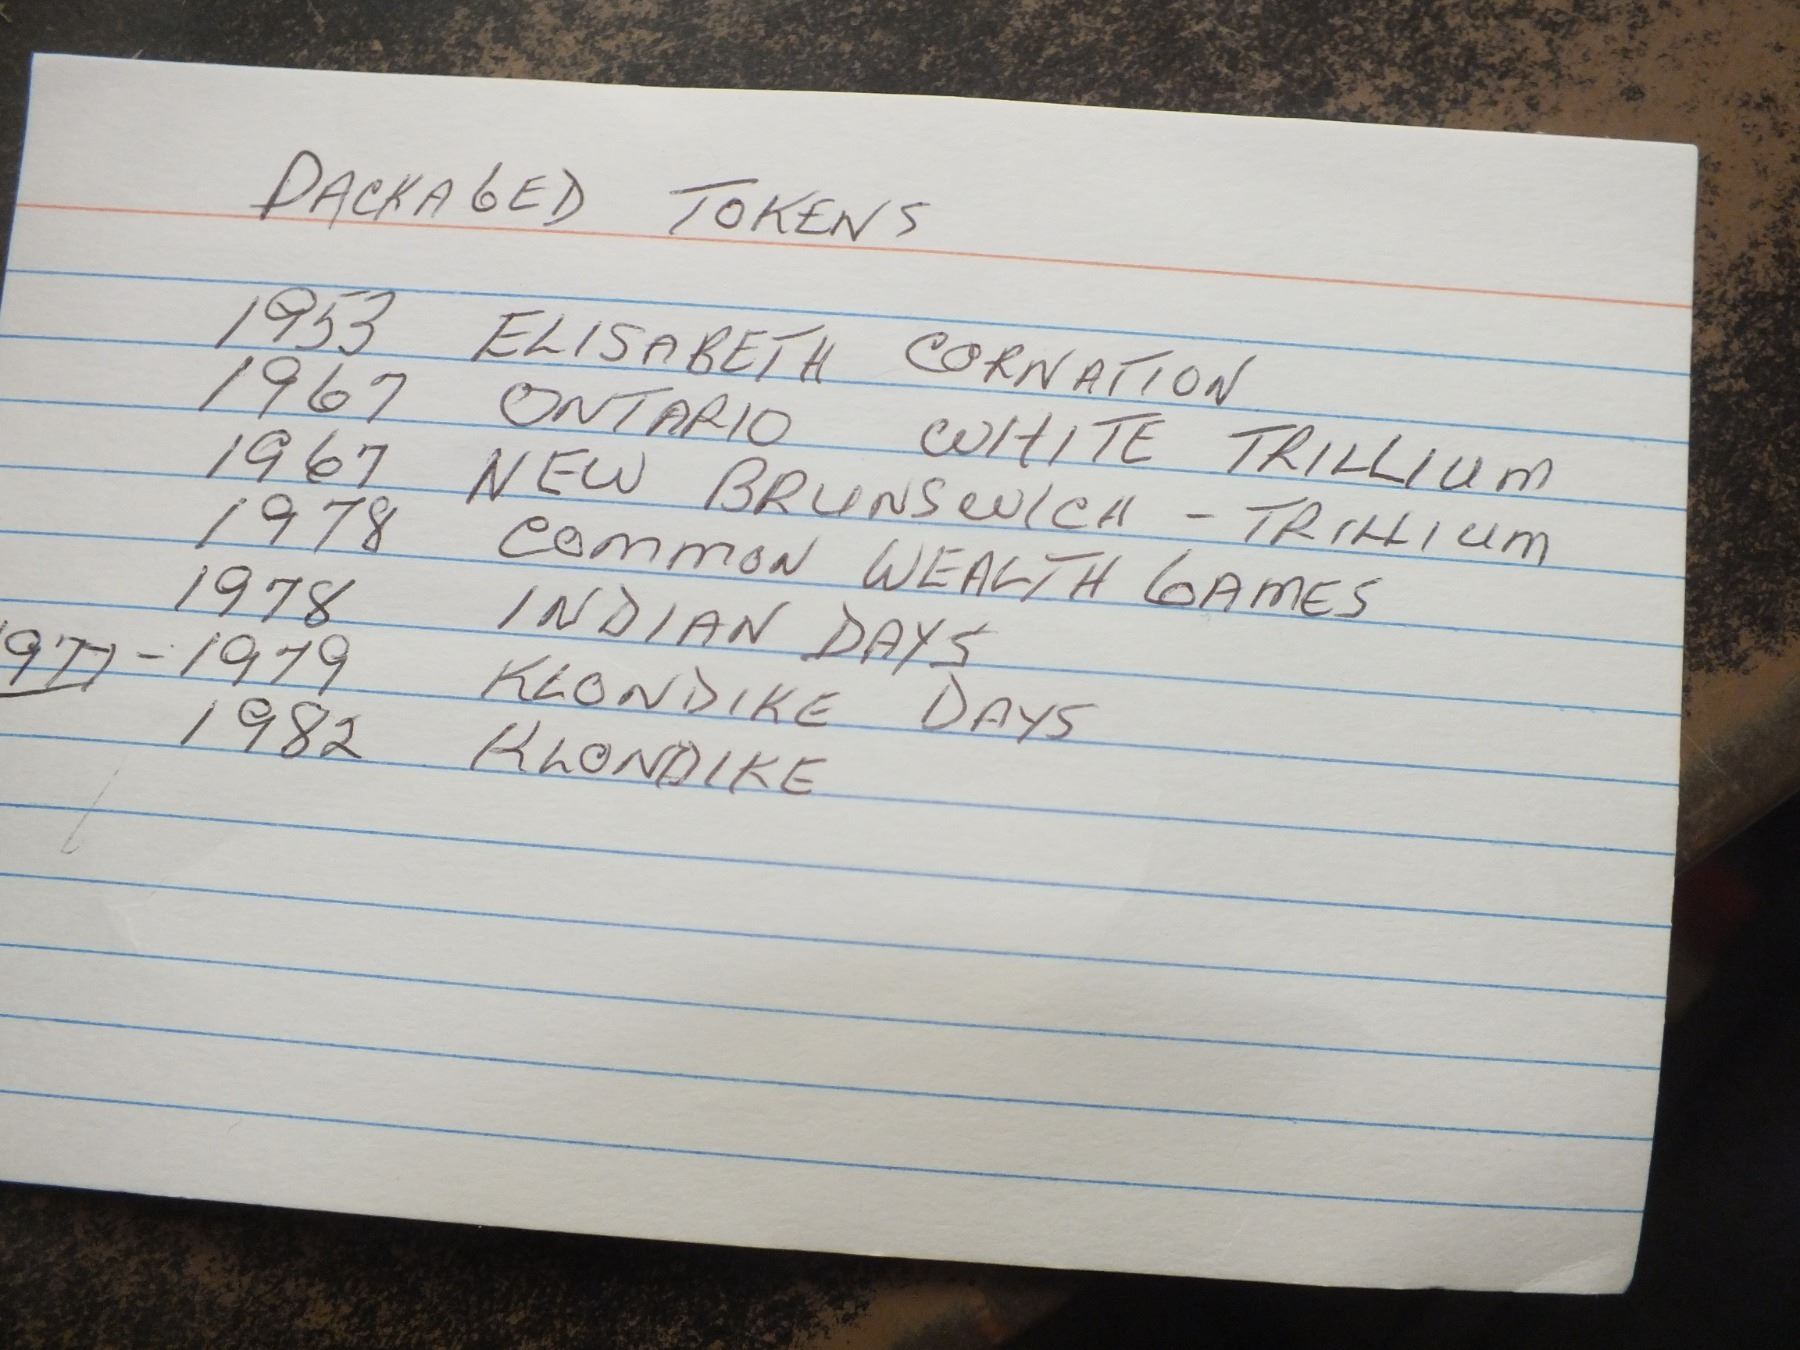 PACKAGED TOKENS
1953 ELISABETH CORNATION
1967 ONTARIO WHITE TRILLIUM
1967 NEW BRUNSWICH - TRILLIUM
1978 COMMON WEALTH GAMES
1978 INDIAN DAYS
1977-1979 KLONDIKE DAYS
1982 KLONDIKE